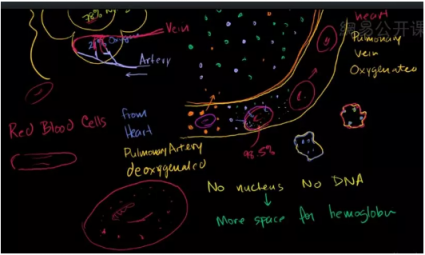 Vein
Artery
heart
网易公开课
Pulmonary
vein
Oxygenated
Red Blood Cells
from
Heart
Pulmonary Artery
deoxygenated
98.5%
No nucleus No DNA
More space for hemoglobin